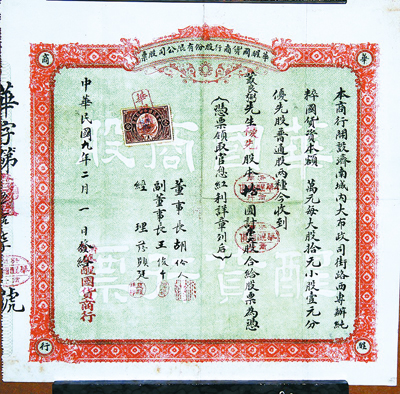 華醒國貨商行股份有限公司股票
華
商
醒
行
華醒國貨商股票
本商行開設濟南城內大布政司街路西專辦純
粹國貨資本額 萬元每大股拾元小股壹元分
優先股普通股兩種今收到
先生優先股本拾圓計 股合給股票為憑
(憑票領取官息紅利詳章列后)
董事長胡伶人
副董事長王俊千
經理
中華民國九年二月一日發給
華醒國貨商行
華字第
號